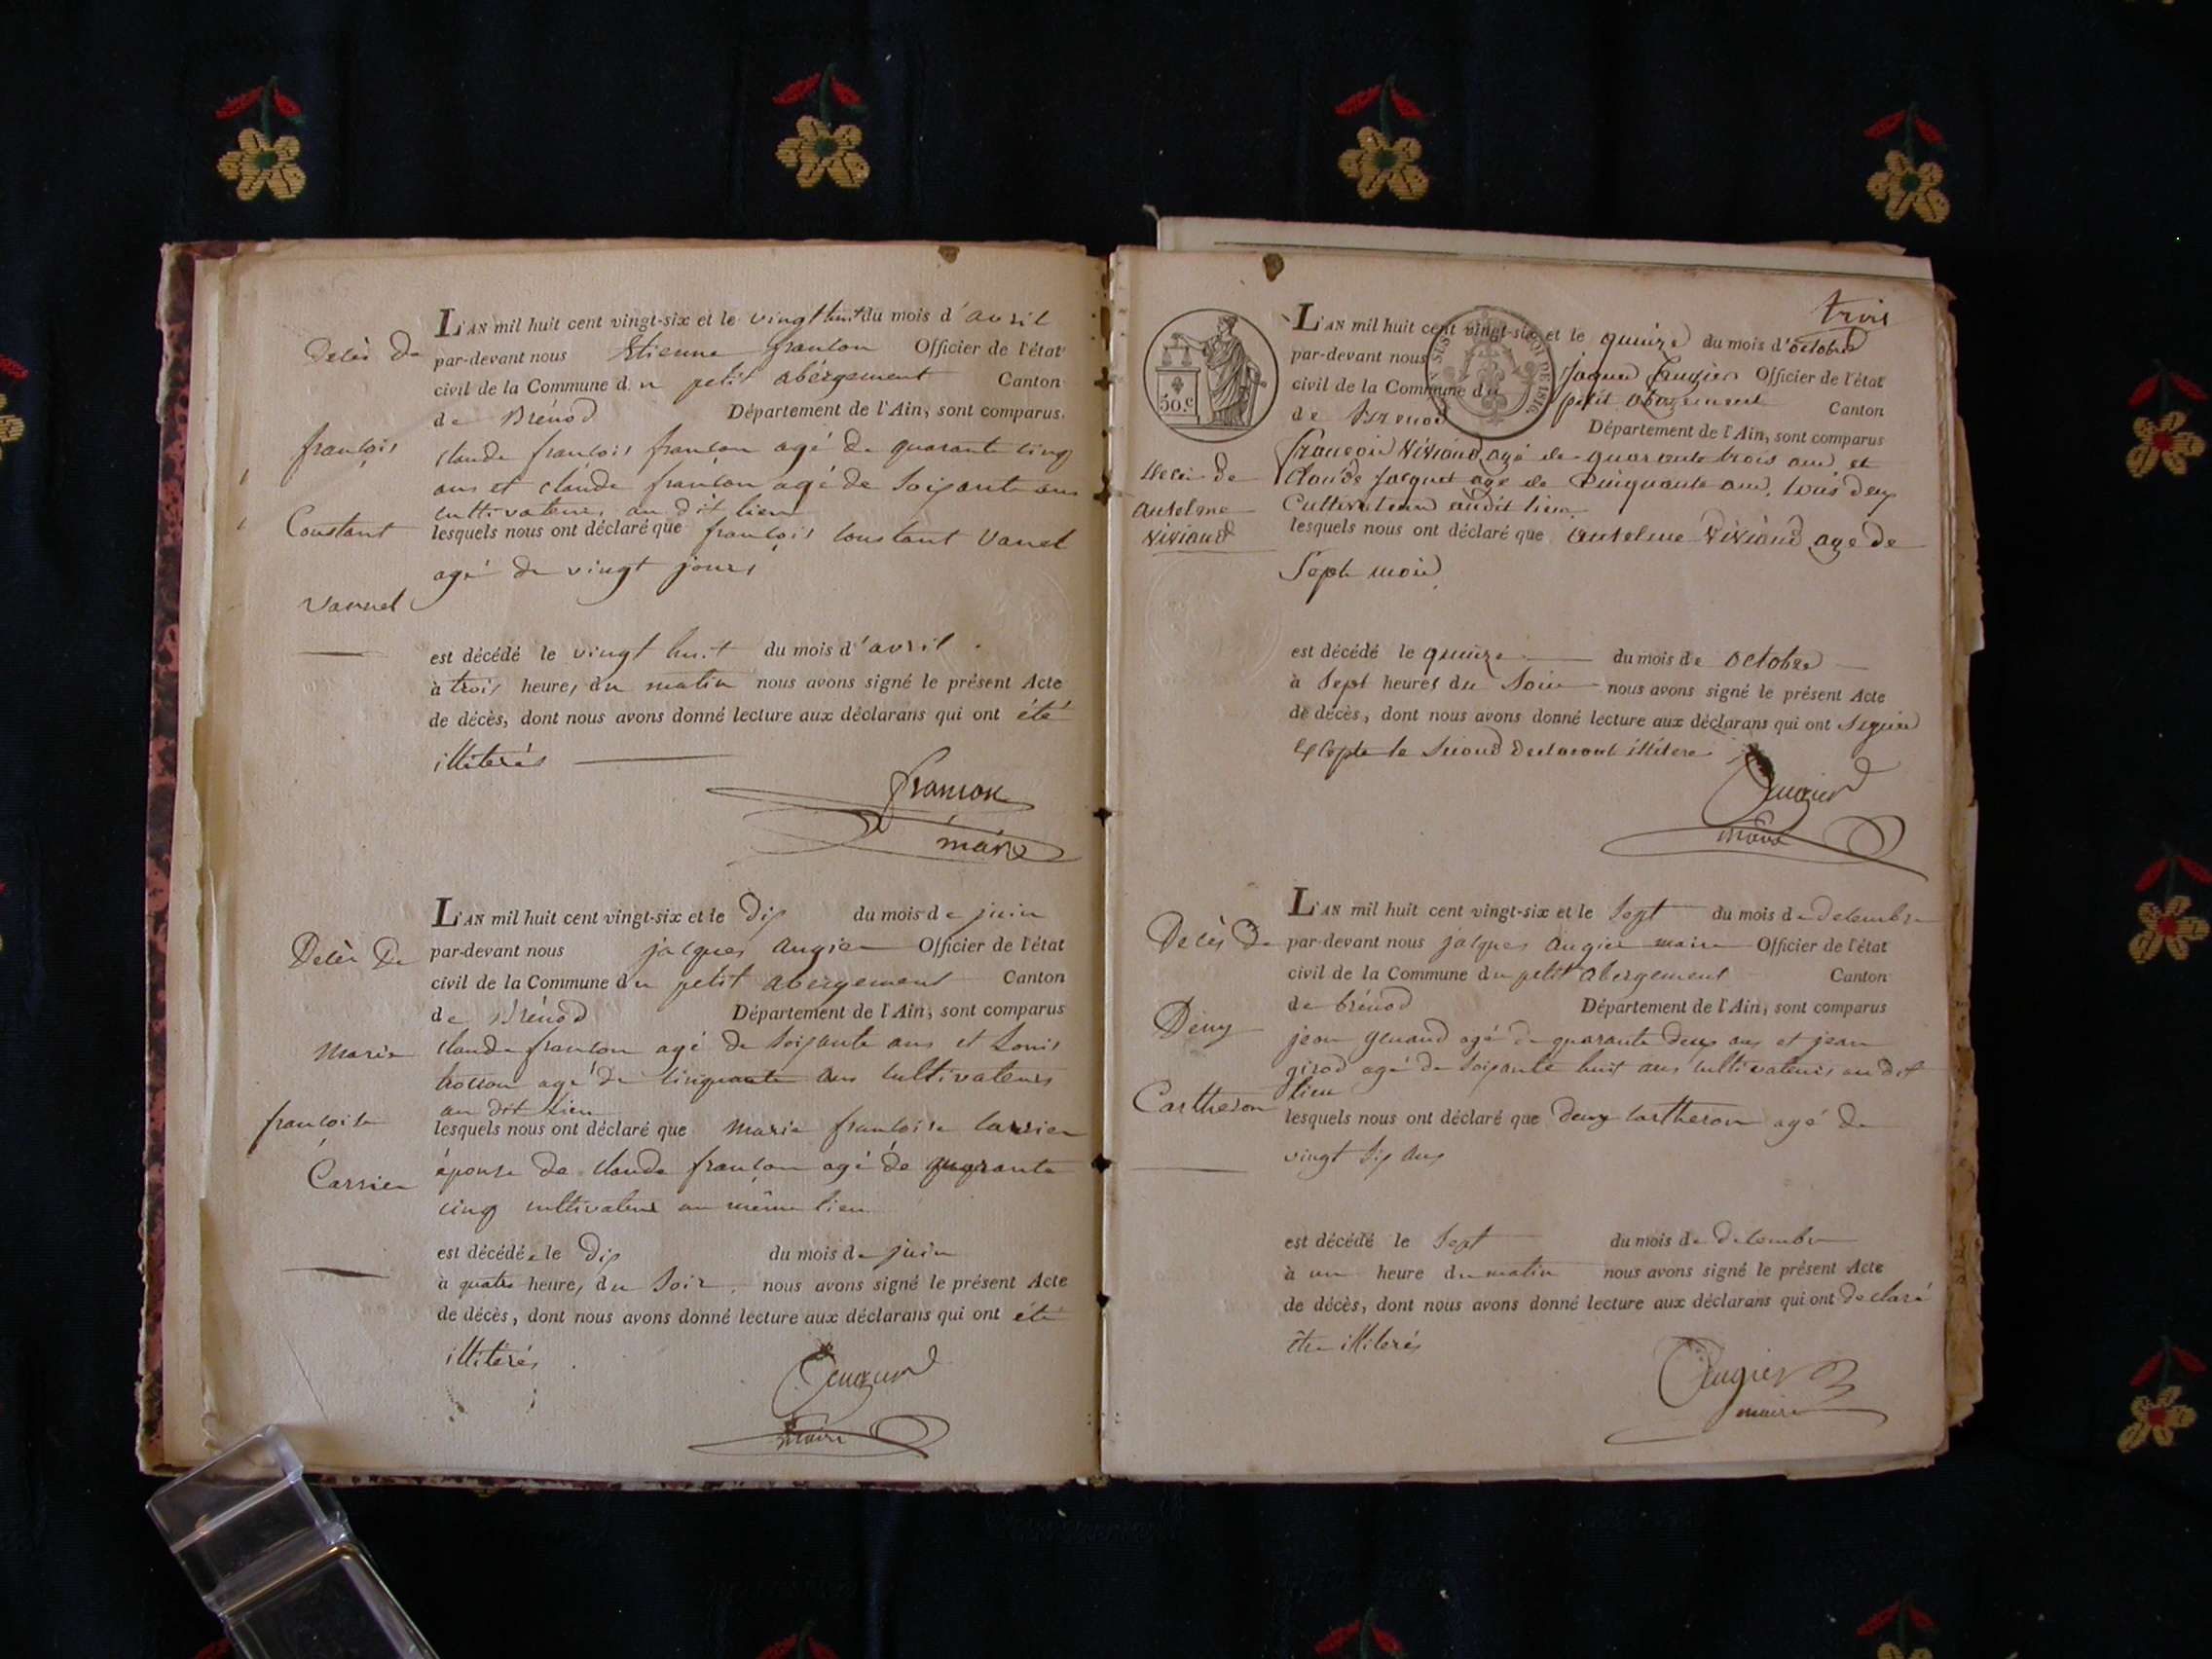 L'AN mil huit cent vingt-six et le vingt huit du mois d'avril
Décès De
par-devant nous Etienne françon Officier de l'état
civil de la Commune du petit abérgement Canton
de Brénod Département de l'Ain, sont comparus.
françois
claude françois françon agé de quarante cinq
ans et claude françon agé de soixante ans
cultivateurs au dit lieu
Constant
lesquels nous ont déclaré que françois constant vanel
agé de vingt jours
Vannel
est décédé le vingt huit du mois d'avril
à trois heures du matin nous avons signé le présent Acte
de décès, dont nous avons donné lecture aux déclarans qui ont été
illiterés
françon
maire
L'AN mil huit cent vingt-six et le Dix du mois de juin
Décès De
par-devant nous jacques augier Officier de l'état
civil de la Commune du petit abérgement Canton
de Brénod Département de l'Ain, sont comparus
Marie
claude françon agé de soixante ans et Louis
agé de cinquante ans cultivateurs
au dit lieu
françoise
lesquels nous ont déclaré que Marie françoise carrier
Carrier
épouse de claude françon agé de quarante
cinq cultivateur au même lieu
est décédée le Dix du mois de juin
à quatre heures du soir. nous avons signé le présent Acte
de décès, dont nous avons donné lecture aux déclarans qui ont été
illiterés
augier
Maire
trois
50.c
L'AN mil huit cent vingt-six et le quinze du mois d'octobre
par-devant nous Jaques augier Officier de l'état
civil de la Commune du petit abergement Canton
de Brenod Département de l'Ain, sont comparus
françois Viviand agé de quarante trois ans et
Décès de
Claude Jacquet agé de Cinquante ans, tous deux
anselme
Cultivateurs audit lieu
Viviand
lesquels nous ont déclaré que anselme Viviand agé de
Sept mois
est décédé le quinze du mois de octobre
à Sept heures du Soir nous avons signé le présent Acte
de décès, dont nous avons donné lecture aux déclarans qui ont signé
excepté le second declarant illitere
augier
maire
L'AN mil huit cent vingt-six et le sept du mois de decembre
Décès De
par-devant nous jacques augier maire Officier de l'état
civil de la Commune du petit abergement Canton
de brénod Département de l'Ain, sont comparus
Deny
jean genand agé de quarante deux ans et jean
girod agé de soixante huit ans cultivateurs au dit
lieu
Cartheron
lesquels nous ont déclaré que deny cartheron agé de
vingt six ans
est décédé le sept du mois de decembre
à un heure du matin nous avons signé le présent Acte
de décès, dont nous avons donné lecture aux déclarans qui ont declaré
être illiterés
augier
maire